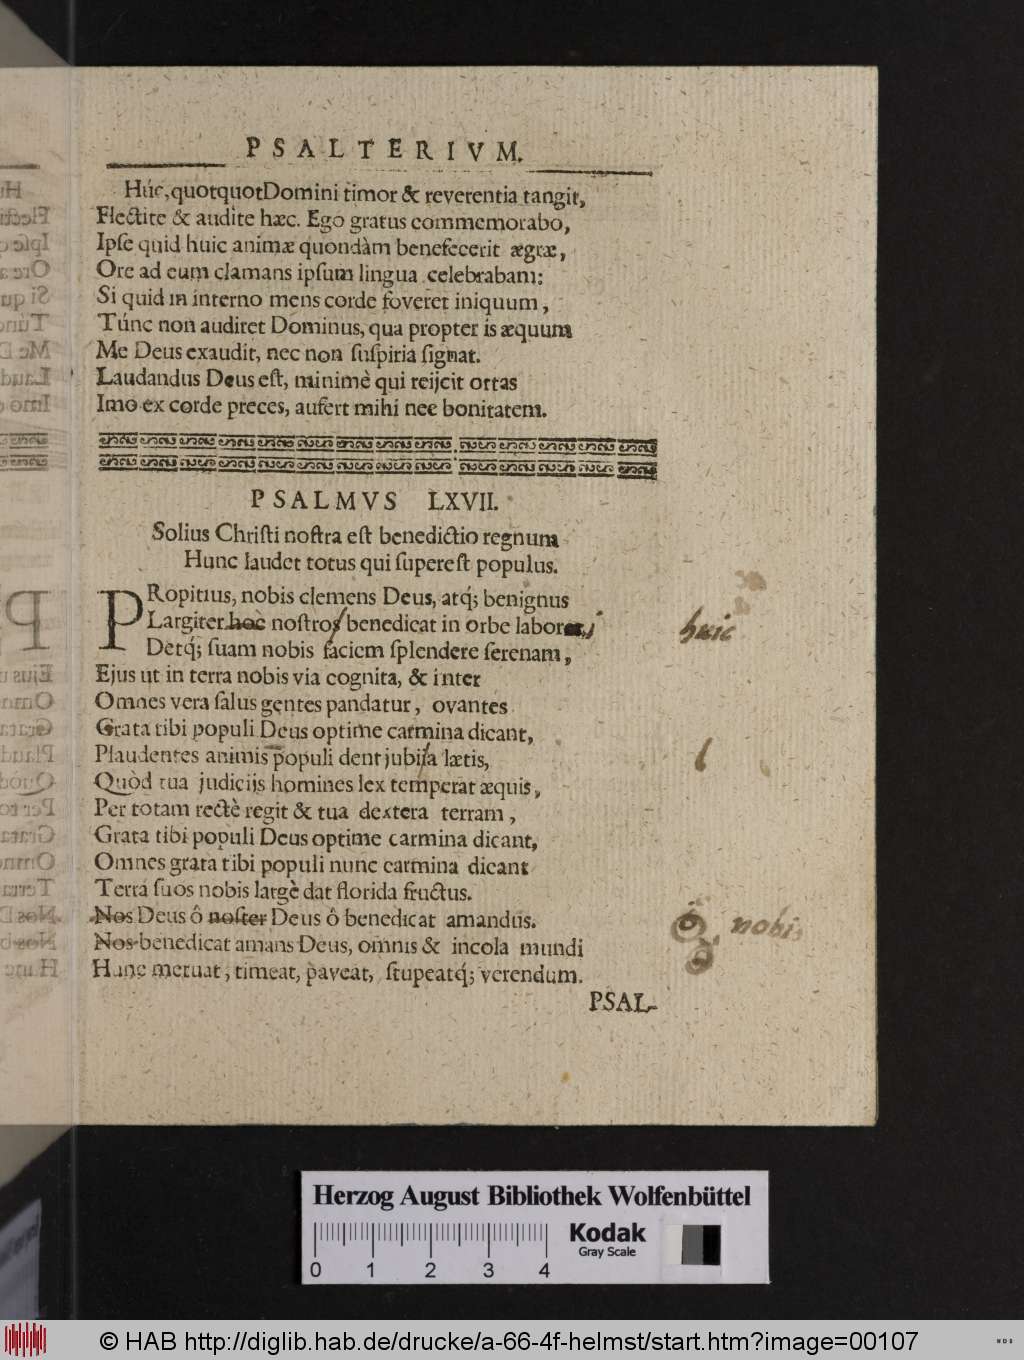 PSALTERIVM.
Húc, quotquot Domini timor & reverentia tangit,
Flectite & audite hæc. Ego gratus commemorabo,
Ipſe quid huic animæ quondàm benefecerit ægræ,
Ore ad eum clamans ipſum lingua celebrabam:
Si quid in interno mens corde foveret iniquum,
Túnc non audiret Dominus, qua propter is æquum
Me Deus exaudit, nec non ſuſpiria ſignat.
Laudandus Deus eſt, minimè qui reijcit ortas
Imo ex corde preces, aufert mihi nec bonitatem.
PSALMVS LXVII.
Solius Chriſti noſtra eſt benedictio regnum
Hunc laudet totus qui ſupereſt populus.
PRopitius, nobis clemens Deus, atq́; benignus
Largiter hoc noſtros benedicat in orbe labores,
huic
Detq́; ſuam nobis faciem ſplendere ſerenam,
Ejus ut in terra nobis via cognita, & inter
Omnes vera ſalus gentes pandatur, ovantes
Grata tibi populi Deus optime carmina dicant,
Plaudentes animis populi dent jubiſa lætis,
l
Quòd tua judicijs homines lex temperat æquis,
Per totam rectè regit & tua dextera terram,
Grata tibi populi Deus optime carmina dicant,
Omnes grata tibi populi nunc carmina dicant
Terrá ſuos nobis largè dat florida fructus.
Nos Deus ô noſter Deus ô benedicat amandus.
nobis
Nos benedicat amans Deus, omnis & incola mundi
Hunc metuat, timeat, paveat, ſtupeatq́; verendum.
PSAL-
Herzog August Bibliothek Wolfenbüttel
Kodak
Gray Scale
0 1 2 3 4
© HAB http://diglib.hab.de/drucke/a-66-4f-helmst/start.htm?image=00107